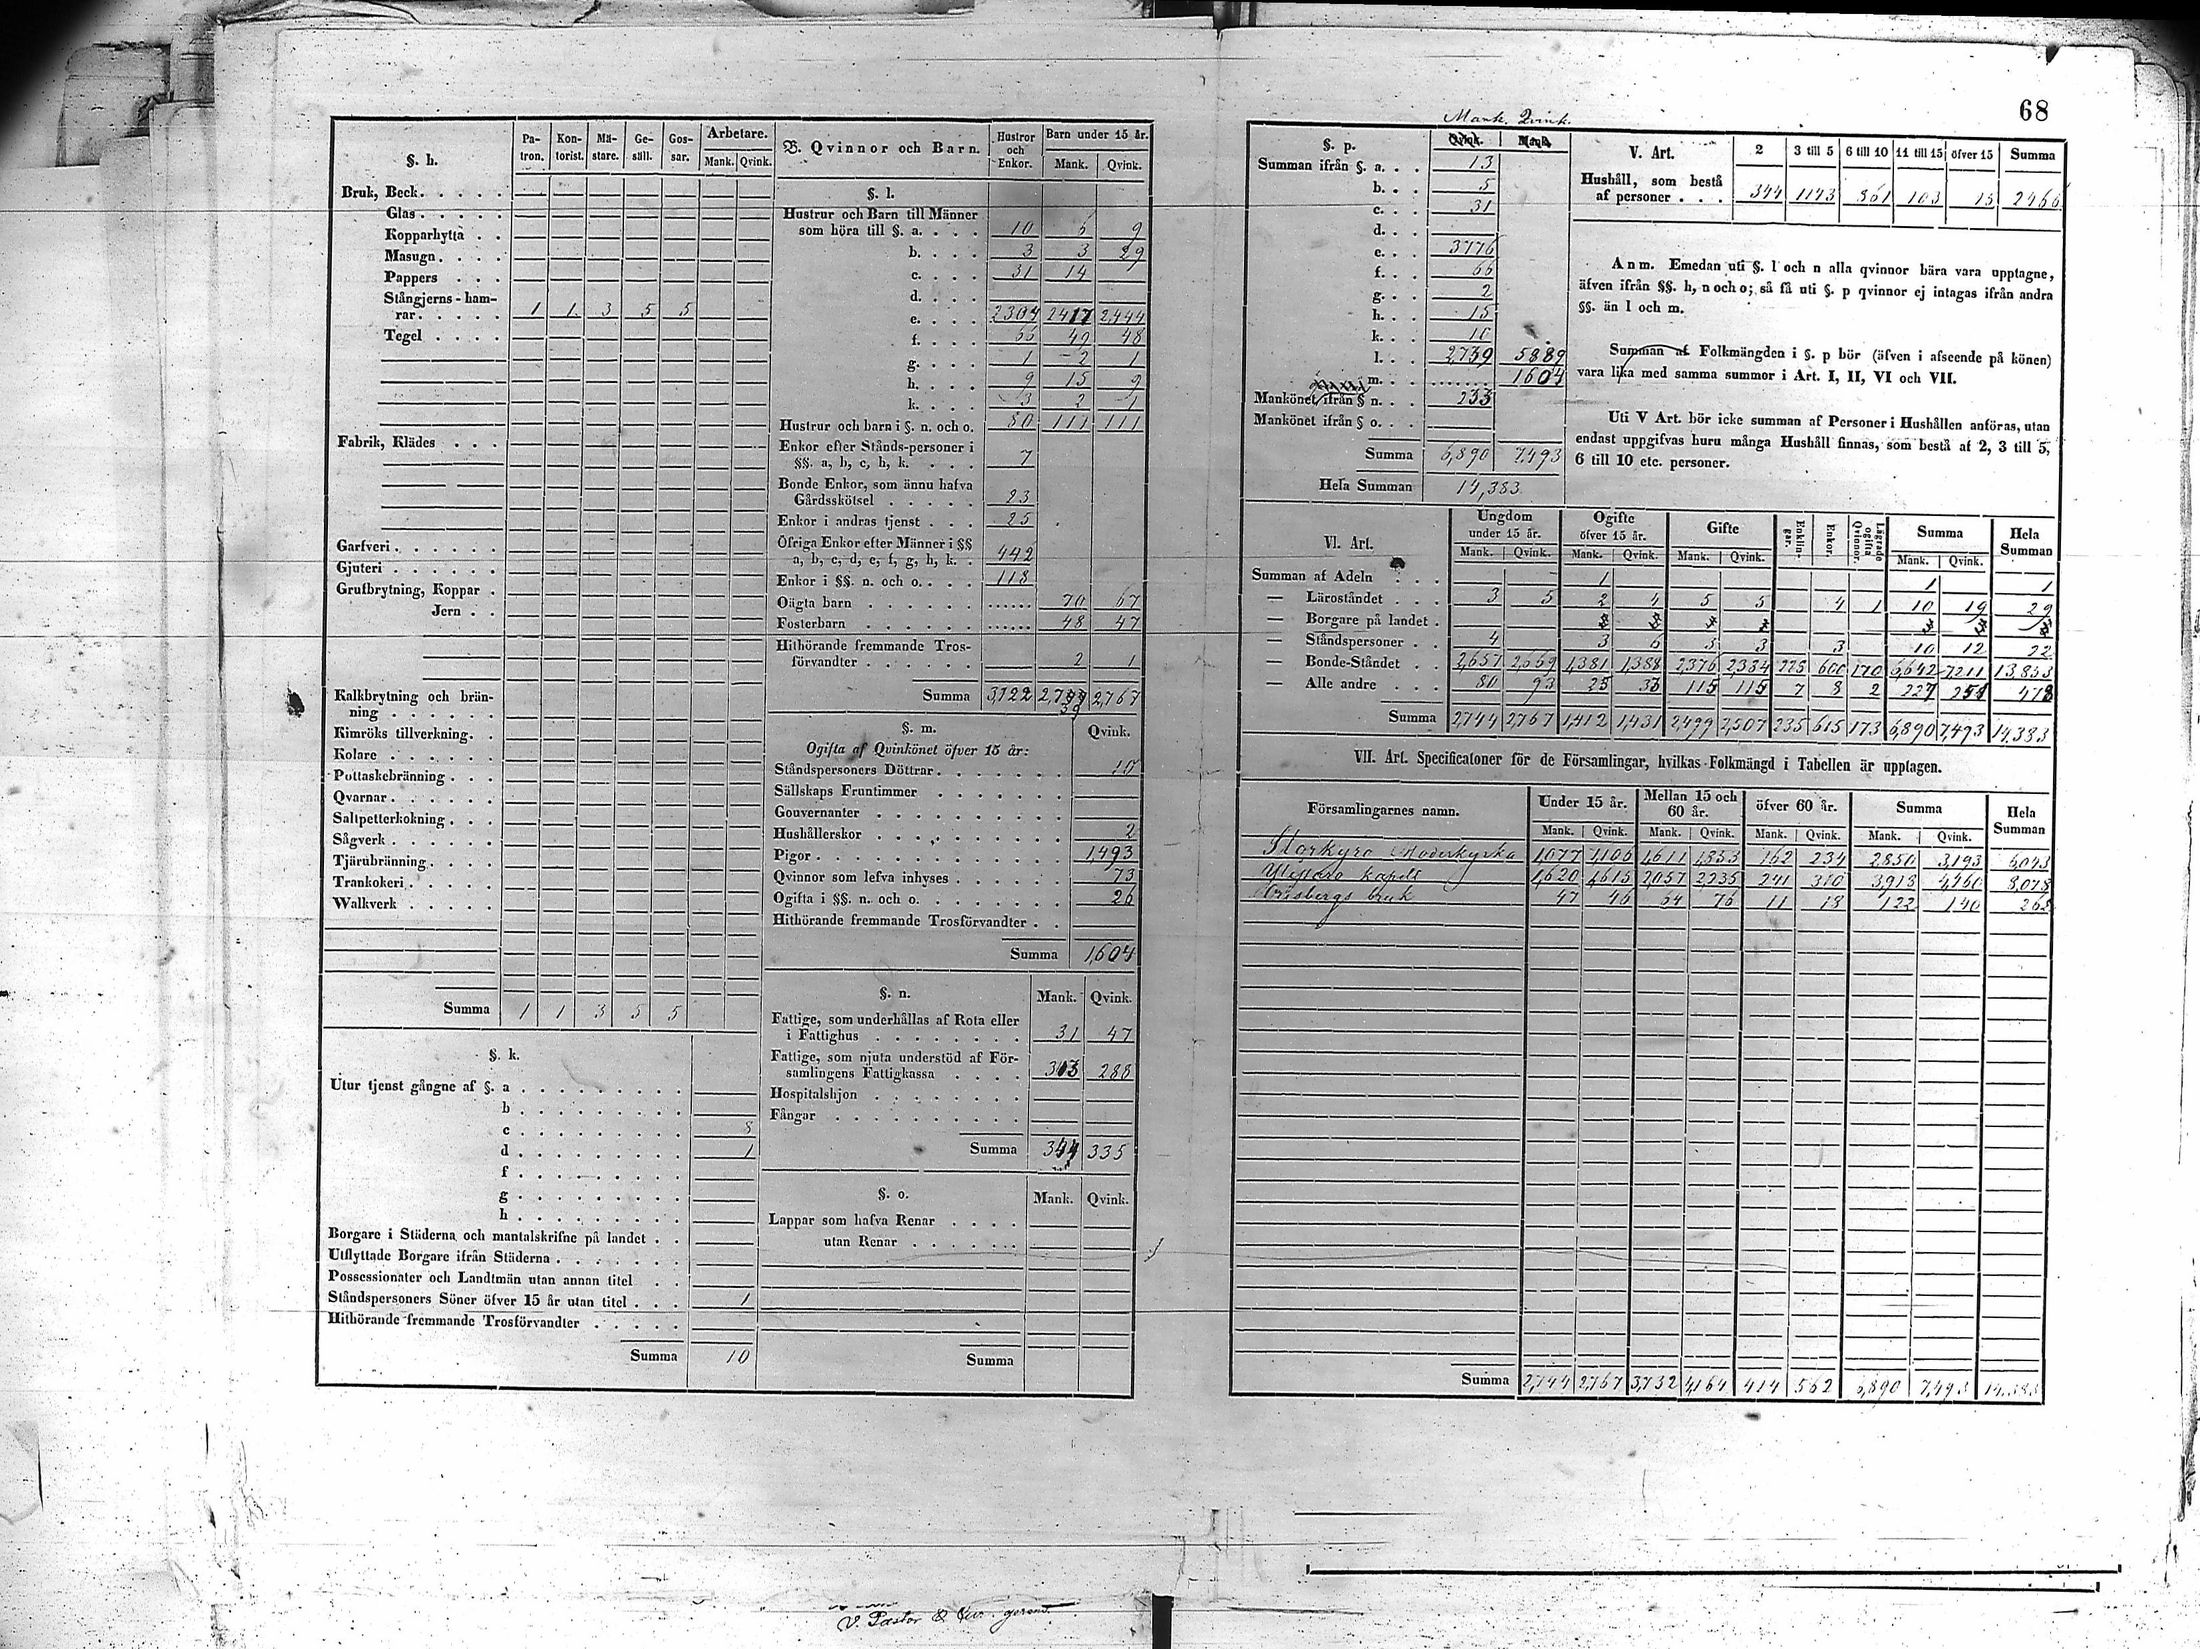 68
§. h.
Pa-tron. Kon-torist. Mä-stare. Ge-säll. Gos-sar. Arbetare. Mank. Qvink.
Bruk, Beck
Glas
Kopparhytta
Masugn
Pappers
Stångjerns-ham-
rar 1 1 3 5 5
Tegel
Fabrik, Klädes
Garfveri
Gjuteri
Grufbrytning, Koppar
Jern
Kalkbrytning och brän-
ning
Kimröks tillverkning
Kolare
Pottaskebränning
Qvarnar
Saltpetterkokning
Sågverk
Tjärubränning
Trankokeri
Walkverk
Summa 1 1 3 5 5
§. k.
Utur tjenst gångne af §. a
b
c 8
d 1
f
g
h
Borgare i Städerna och mantalskrifne på landet
Utflyttade Borgare ifrån Städerna
Possessionater och Landtmän utan annan titel
Ståndspersoners Söner öfver 15 år utan titel 1
Hithörande fremmande Trosförvandter
Summa 10
B. Qvinnor och Barn. Hustror och Enkor. Barn under 15 år. Mank. Qvink.
§. l.
Hustrur och Barn till Männer
som höra till §. a. 10 6 9
b. 3 3 29
c. 31 14
d.
e. 2304 2417 2,444
f. 66 49 48
g. 1 2 1
h. 9 15 9
k. 3 2 1
Hustrur och barn i §. n. och o. 80 111 111
Enkor efter Stånds-personer i
§§. a, b, c, h, k. 7
Bonde Enkor, som ännu hafva
Gårdsskötsel 23
Enkor i andras tjenst 25
Öfriga Enkor efter Männer i §§
a, b, c, d, e, f, g, h, k. 442
Enkor i §§. n. och o. 118
Oägta barn 70 67
Fosterbarn 48 47
Hithörande fremmande Tros-
förvandter 2 1
Summa 3,122 2,767
§. m. Qvink.
Ogifta af Qvinkönet öfver 15 år:
Ståndspersoners Döttrar 10
Sällskaps Fruntimmer
Gouvernanter
Hushållerskor 2
Pigor 1,493
Qvinnor som lefva inhyses 73
Ogifta i §§. n. och o. 26
Hithörande fremmande Trosförvandter
Summa 1,604
§. n. Mank. Qvink.
Fattige, som underhållas af Rota eller
i Fattighus 31 47
Fattige, som njuta understöd af För-
samlingens Fattigkassa 288
Hospitalshjon
Fångar
Summa 335
§. o. Mank. Qvink.
Lappar som hafva Renar
utan Renar
Summa
Mank. Qvink.
§. p. Qvink. Mank.
Summan ifrån §. a. 13
b. 5
c. 31
d.
e. 3776
f. 66
g. 2
h. 15
k. 10
l. 2,739 5889
m. 1604
Mankönet ifrån § n. 233
Mankönet ifrån § o.
Summa 6,890 7,493
Hela Summan 14,383
V. Art. 2 3 till 5 6 till 10 11 till 15 öfver 15 Summa
Hushåll, som bestå
af personer 344 1143 861 103 15 2466
Anm. Emedan uti §. l och n alla qvinnor bära vara upptagne,
äfven ifrån §§. h, n och o; så få uti §. p qvinnor ej intagas ifrån andra
§§. än l och m.
Summan af Folkmängden i §. p bör (äfven i afseende på könen)
vara lika med samma summor i Art. I, II, VI och VII.
Uti V Art. bör icke summan af Personer i Hushållen anföras, utan
endast uppgifvas huru många Hushåll finnas, som bestå af 2, 3 till 5,
6 till 10 etc. personer.
VI. Art. Ungdom under 15 år. Ogifte öfver 15 år. Gifte Enklin-gar. Enkor Lägrade ogifta Qvinnor. Summa Hela Summan
Mank. Qvink. Mank. Qvink. Mank. Qvink. Mank. Qvink.
Summan af Adeln 1 1 1
— Läroståndet 3 5 2 4 5 5 4 1 10 19 29
— Borgare på landet
— Ståndspersoner 4 3 6 3 3 3 10 12 22
— Bonde-Ståndet 2,657 2,669 1,381 1,388 2,376 2,384 228 600 170 6,642 7,211 13,853
— Alle andre 80 93 25 33 115 115 7 8 2 227 251 478
Summa 2,744 2,767 1,412 1,431 2,499 2,507 235 615 173 6,890 7,493 14,383
VII. Art. Specificatoner för de Församlingar, hvilkas Folkmängd i Tabellen är upptagen.
Församlingarnes namn. Under 15 år. Mellan 15 och 60 år. öfver 60 år. Summa Hela Summan
Mank. Qvink. Mank. Qvink. Mank. Qvink. Mank. Qvink.
Storkyro Moderkyrka 1,077 1,106 1,611 1,853 162 234 2,850 3,193 6,043
Ylistaro kapell 1,620 1,615 2,057 2,235 241 310 3,918 4,160 8,078
Orisbergs bruk 47 46 64 76 11 18 122 140 262
Summa 2,744 2,767 3,732 4,164 414 562 6,890 7,493 14,383
V. Pastor &